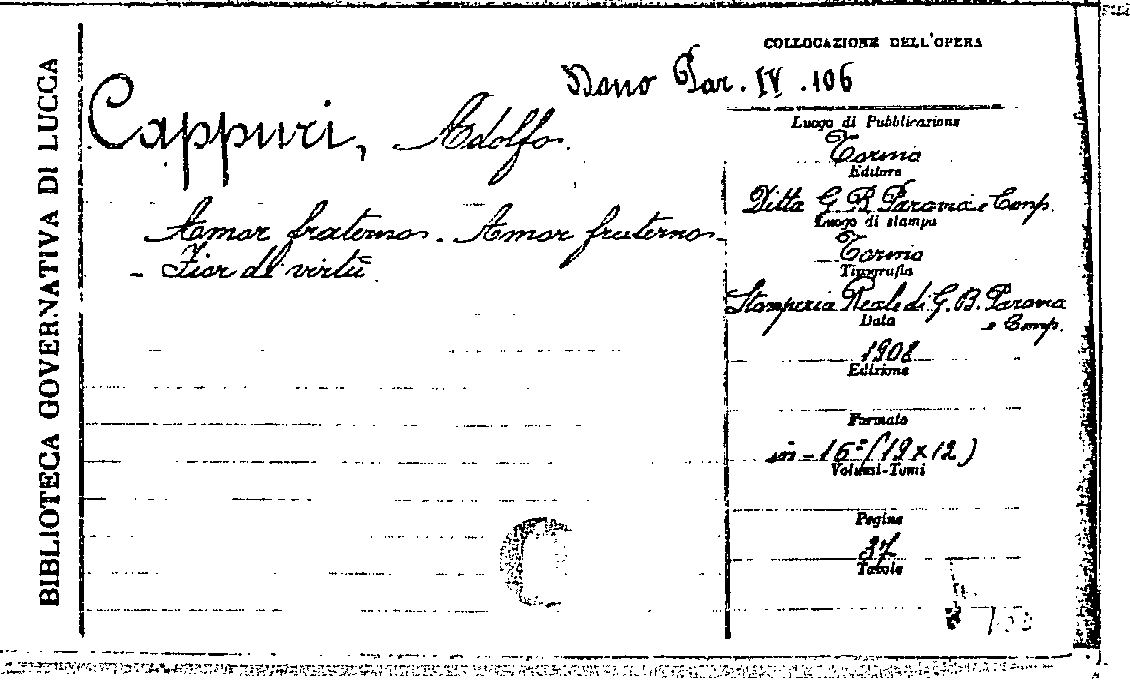 BIBLIOTECA GOVERNATIVA DI LUCCA
COLLOCAZIONE DELL'OPERA
Par. IV. 106
Cappuri, Adolfo.
Amor fraterno - Amor fraterno -
- Fior di virtù
Luogo di Pubblicazione
Torino
Editore
Ditta G. B. Paravia e Comp.
Luogo di stampa
Torino
Tipografia
Stamperia Reale di G. B. Paravia
e Comp.
Data
1908
Edizione
Formato
in-16º (19x12)
Volumi-Tomi
Pagine
37
Tavole